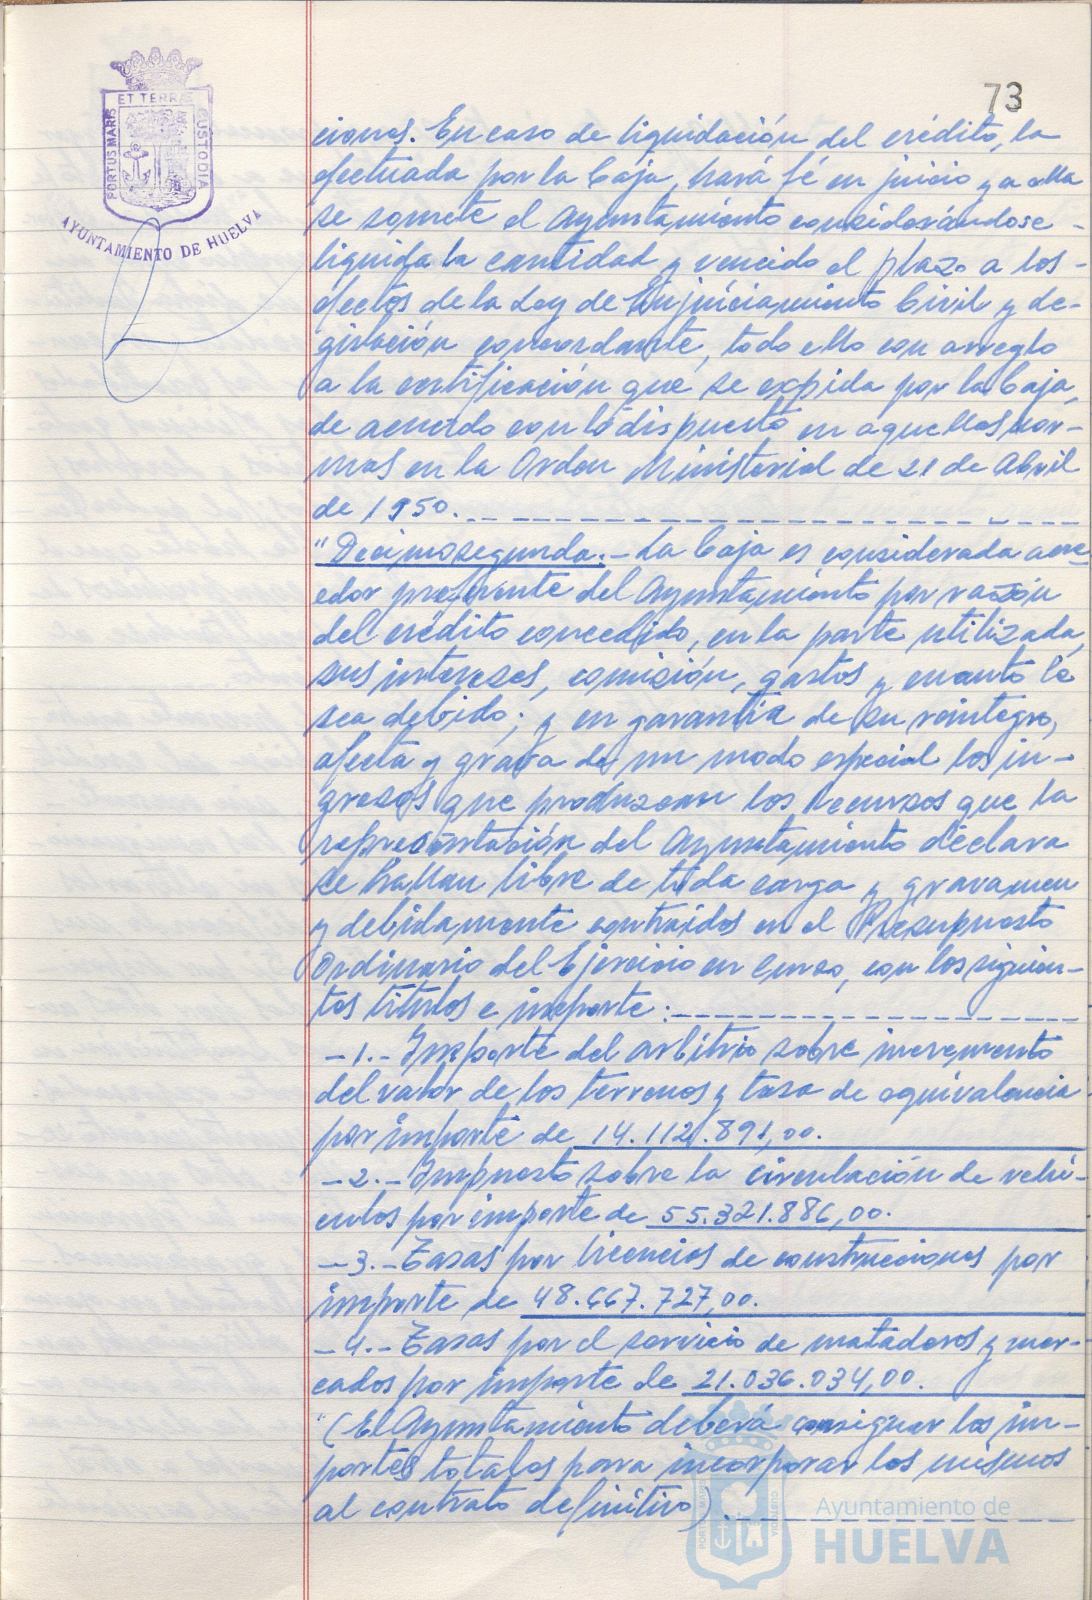 73
PORTUS MARIS
ET TERRAE
CUSTODIA
AYUNTAMIENTO DE HUELVA
ciones. En caso de liquidación del crédito, la
efectuada por la Caja, hará fé en juicio y a ella
se somete el Ayuntamiento considerándose -
líquida la cantidad y vencido el plazo a los -
efectos de la Ley de Enjuiciamiento Civil y Le-
gislación concordante, todo ello con arreglo
a la certificación que se expida por la Caja,
de acuerdo con lo dispuesto en aquellas nor-
mas en la Orden Ministerial de 21 de Abril
de 1950.
"Decimosegunda:- La Caja es considerada acre-
edor preferente del Ayuntamiento por razón
del crédito concedido, en la parte utilizada,
sus intereses, comisión, gastos y cuanto le
sea debido; y en garantía de su reintegro,
afecta y grava de un modo especial los in-
gresos que produzcan los recursos que la
representación del Ayuntamiento declara
se hallan libre de toda carga y gravamen
y debidamente contraidos en el Presupuesto
Ordinario del Ejercicio en curso, con los siguien-
tes títulos e importe:
-1.- Importe del arbitrio sobre incremento
del valor de los terrenos y tasa de equivalencia
por importe de 14.112.891,00.
-2.- Impuesto sobre la circulación de vehí-
culos por importe de 55.321.886,00.
-3.- Tasas por licencias de construcciones por
importe de 48.667.727,00.
-4.- Tasas por el servicio de mataderos y mer-
cados por importe de 21.036.034,00.
"(El Ayuntamiento deberá consignar los im-
portes totales para incorporar los mismos
al contrato definitivo).
Ayuntamiento de
HUELVA